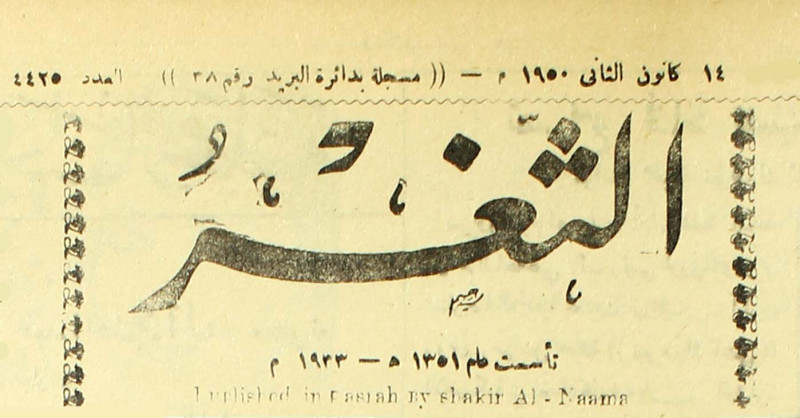 ١٤ كانون الثانى ١٩٥٠ م — (( مسجلة بدائرة البريد رقم ٣٨ )) العدد ٤٤٢٥
الثغر
تأسست عام ١٣٥١ ه — ١٩٣٣ م
Published in Basrah By shakir Al - Naama